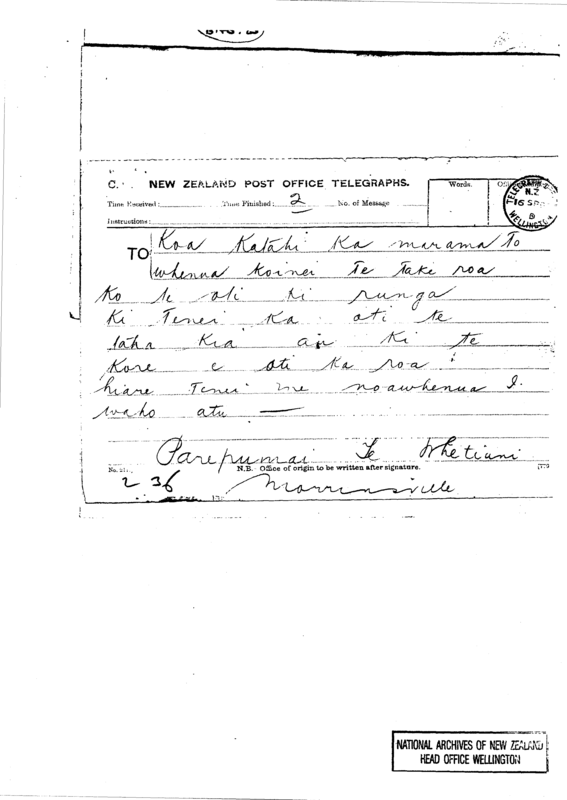 C. NEW ZEALAND POST OFFICE TELEGRAPHS.
Words.
Time Received: Time Finished: 2 No. of Message
Instructions:
TELEGRAPH N.Z 16 SP WELLINGTON
TO Koa Katahi Ka marama To
whenua Koinei Te Take roa
Ko te oti ki runga
Ki Tenei Ka oti te
taha Kia ai Ki te
Kore e oti Ka roa
hiare Tenei me noawhenua I.
waho atu —
Parepumai Te Whetiani
N.B. Office of origin to be written after signature.
2 36 Morrinsville
NATIONAL ARCHIVES OF NEW ZEALAND
HEAD OFFICE WELLINGTON